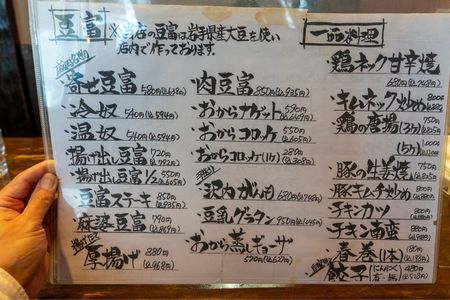 豆富
※当店の豆富は岩手県産大豆を使い
店内で作っております。
寄せ豆富 580円(込638円)
・冷奴 540円(込594円)
・温奴 540円(込594円)
・揚げ出し豆富 720円(込792円)
・揚げ出し豆富1/2 550円(込605円)
・豆富ステーキ 850円(込935円)
・麻婆豆富 790円(込869円)
・厚揚げ 880円(込968円)
・肉豆富 850円(込935円)
・おからナゲット 590円
・おからコロッケ 550円(込605円)
・おからコロッケ(1ケ) 280円(込308円)
・沢内がんも 680円(込748円)
・豆乳グラタン 950円(込1045円)
・おから蒸しギョーザ
570円(込627円)
一品料理
・鶏ネック甘辛焼
680円(込748円)
・キムネック炒め 800円
・鶏の唐揚(3ケ) 750円
(5ケ) 1,000円
・豚の生姜焼 750円
・豚キムチ炒め
・チキンカツ
・チキン南蛮
・春巻(1本) 180円(込198円)
・餃子 にんにく有・無 480円(込528円)